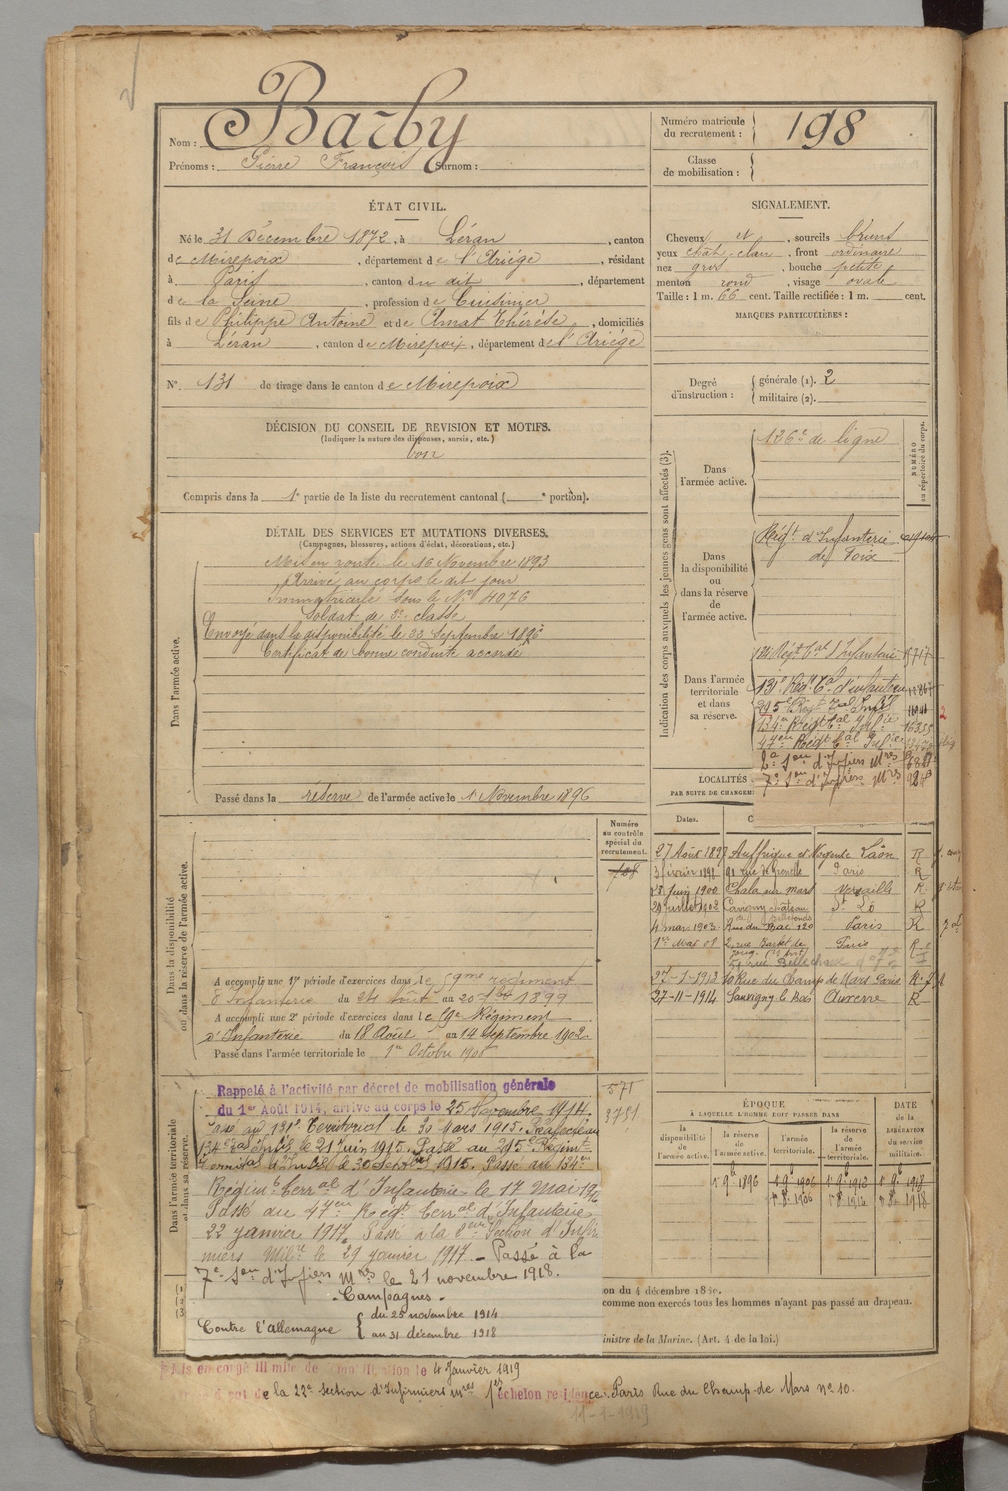 Nom : Barby
Prénoms : Pierre François Surnom :
Numéro matricule du recrutement : 198
Classe de mobilisation :
ÉTAT CIVIL.
Né le 31 Décembre 1872, à Léran, canton
de Mirepoix, département de l'Ariége, résidant
à Paris, canton du dit, département
de la Seine, profession de Cuisinier
fils de Philippe Antoine et de Amat Thérèse, domiciliés
à Léran, canton de Mirepoix, département de l'Ariége
N° 131 de tirage dans le canton de Mirepoix
SIGNALEMENT.
Cheveux et, sourcils bruns
yeux chât. clair, front ordinaire
nez gros, bouche petite
menton rond, visage ovale
Taille : 1 m. 66 cent. Taille rectifiée : 1 m. cent.
MARQUES PARTICULIÈRES :
Degré d'instruction : générale (1). 2
militaire (2).
DÉCISION DU CONSEIL DE REVISION ET MOTIFS.
(Indiquer la nature des dispenses, sursis, etc.)
bon
Compris dans la 1e partie de la liste du recrutement cantonal ( e portion).
DÉTAIL DES SERVICES ET MUTATIONS DIVERSES.
(Campagnes, blessures, actions d'éclat, décorations, etc.)
Dans l'armée active.
Mis en route le 16 Novembre 1893
Arrivé au corps le dit jour
Immatriculé sous le N° 4076
Soldat de 2e classe
Envoyé dans la disponibilité le 22 Septembre 1896
Certificat de bonne conduite accordé
Passé dans la réserve de l'armée active le 1 Novembre 1896
Indication des corps auxquels les jeunes gens sont affectés (3).
NUMÉRO au répertoire du corps.
Dans l'armée active.
126e de ligne
Dans la disponibilité ou dans la réserve de l'armée active.
Régt. d'Infanterie
de Foix
Dans l'armée territoriale et dans sa réserve.
131e Régt Tal d'infanterie
215e Régt Tal Inf
134e Régt Tal Inf ie 16355
47eme Régt Tal Inf ie
2e Son d'Infiers Mres
7e Son d'Infiers Mres
LOCALITÉS
PAR SUITE DE CHANGEM
Dates.
27 Août 1897 Auffrique et Nogent Laon R
3 février 1898 91 rue de Grenelle Paris R
18 Juin 1900 Versailles R
20 juillet 1902 Cavigny château St Lô R
4 mars 1903 Rue du Bac 120 Paris R
1er Mai 08 2, rue Barbet de Jouy Paris R
27-1-1913 10 Rue du Champ de Mars Paris R
27-11-1914 Sauvigny le Bois Auxerre R
Numéro au contrôle spécial du recrutement.
Dans la disponibilité ou dans la réserve de l'armée active.
A accompli une 1re période d'exercices dans le 59me régiment
d'Infanterie du 24 août au 20 7bre 1899
A accompli une 2e période d'exercices dans le 59e Régiment
d'Infanterie du 18 Août au 14 Septembre 1902
Passé dans l'armée territoriale le 1er Octobre 1906
Dans l'armée territoriale et dans sa réserve.
571
3751
Rappelé à l'activité par décret de mobilisation générale
du 1er Août 1914, arrivé au corps le 25 Novembre 1914.
Passé au 131e Territorial le 30 Mars 1915. Réaffecté au
134e Tal Infie le 21 juin 1915. Passé au 215e Régimt
Territal d'Infie le 30 Septbre 1915. Passé au 134e
Régimt Terral d'Infanterie le 17 Mai 1916
Passé au 47eme Régt Terral d'Infanterie
22 janvier 1917. Passé à la 2eme Section d'Infir
miers Milres le 29 janvier 1917. - Passé à la
7e Son d'Infiers Mres le 21 novembre 1918.
- Campagnes -
Contre l'Allemagne { du 25 novembre 1914
au 31 décembre 1918
ÉPOQUE
À LAQUELLE L'HOMME DOIT PASSER DANS
la disponibilité de l'armée active.
la réserve de l'armée active.
l'armée territoriale.
la réserve de l'armée territoriale.
DATE de la LIBÉRATION du service militaire.
1 9b 1896 1 9b 1906 1 9b 1912 1 9b 1918
on du 4 décembre 18
comme non exercés tous les hommes n'ayant pas passé au drapeau.
inistre de la Marine. (Art. 4 de la loi.)
le 4 Janvier 1919
de la 22e section d'Infirmiers Mres 1er échelon residence. Paris Rue du Champ-de Mars n° 10.
11-1-1919